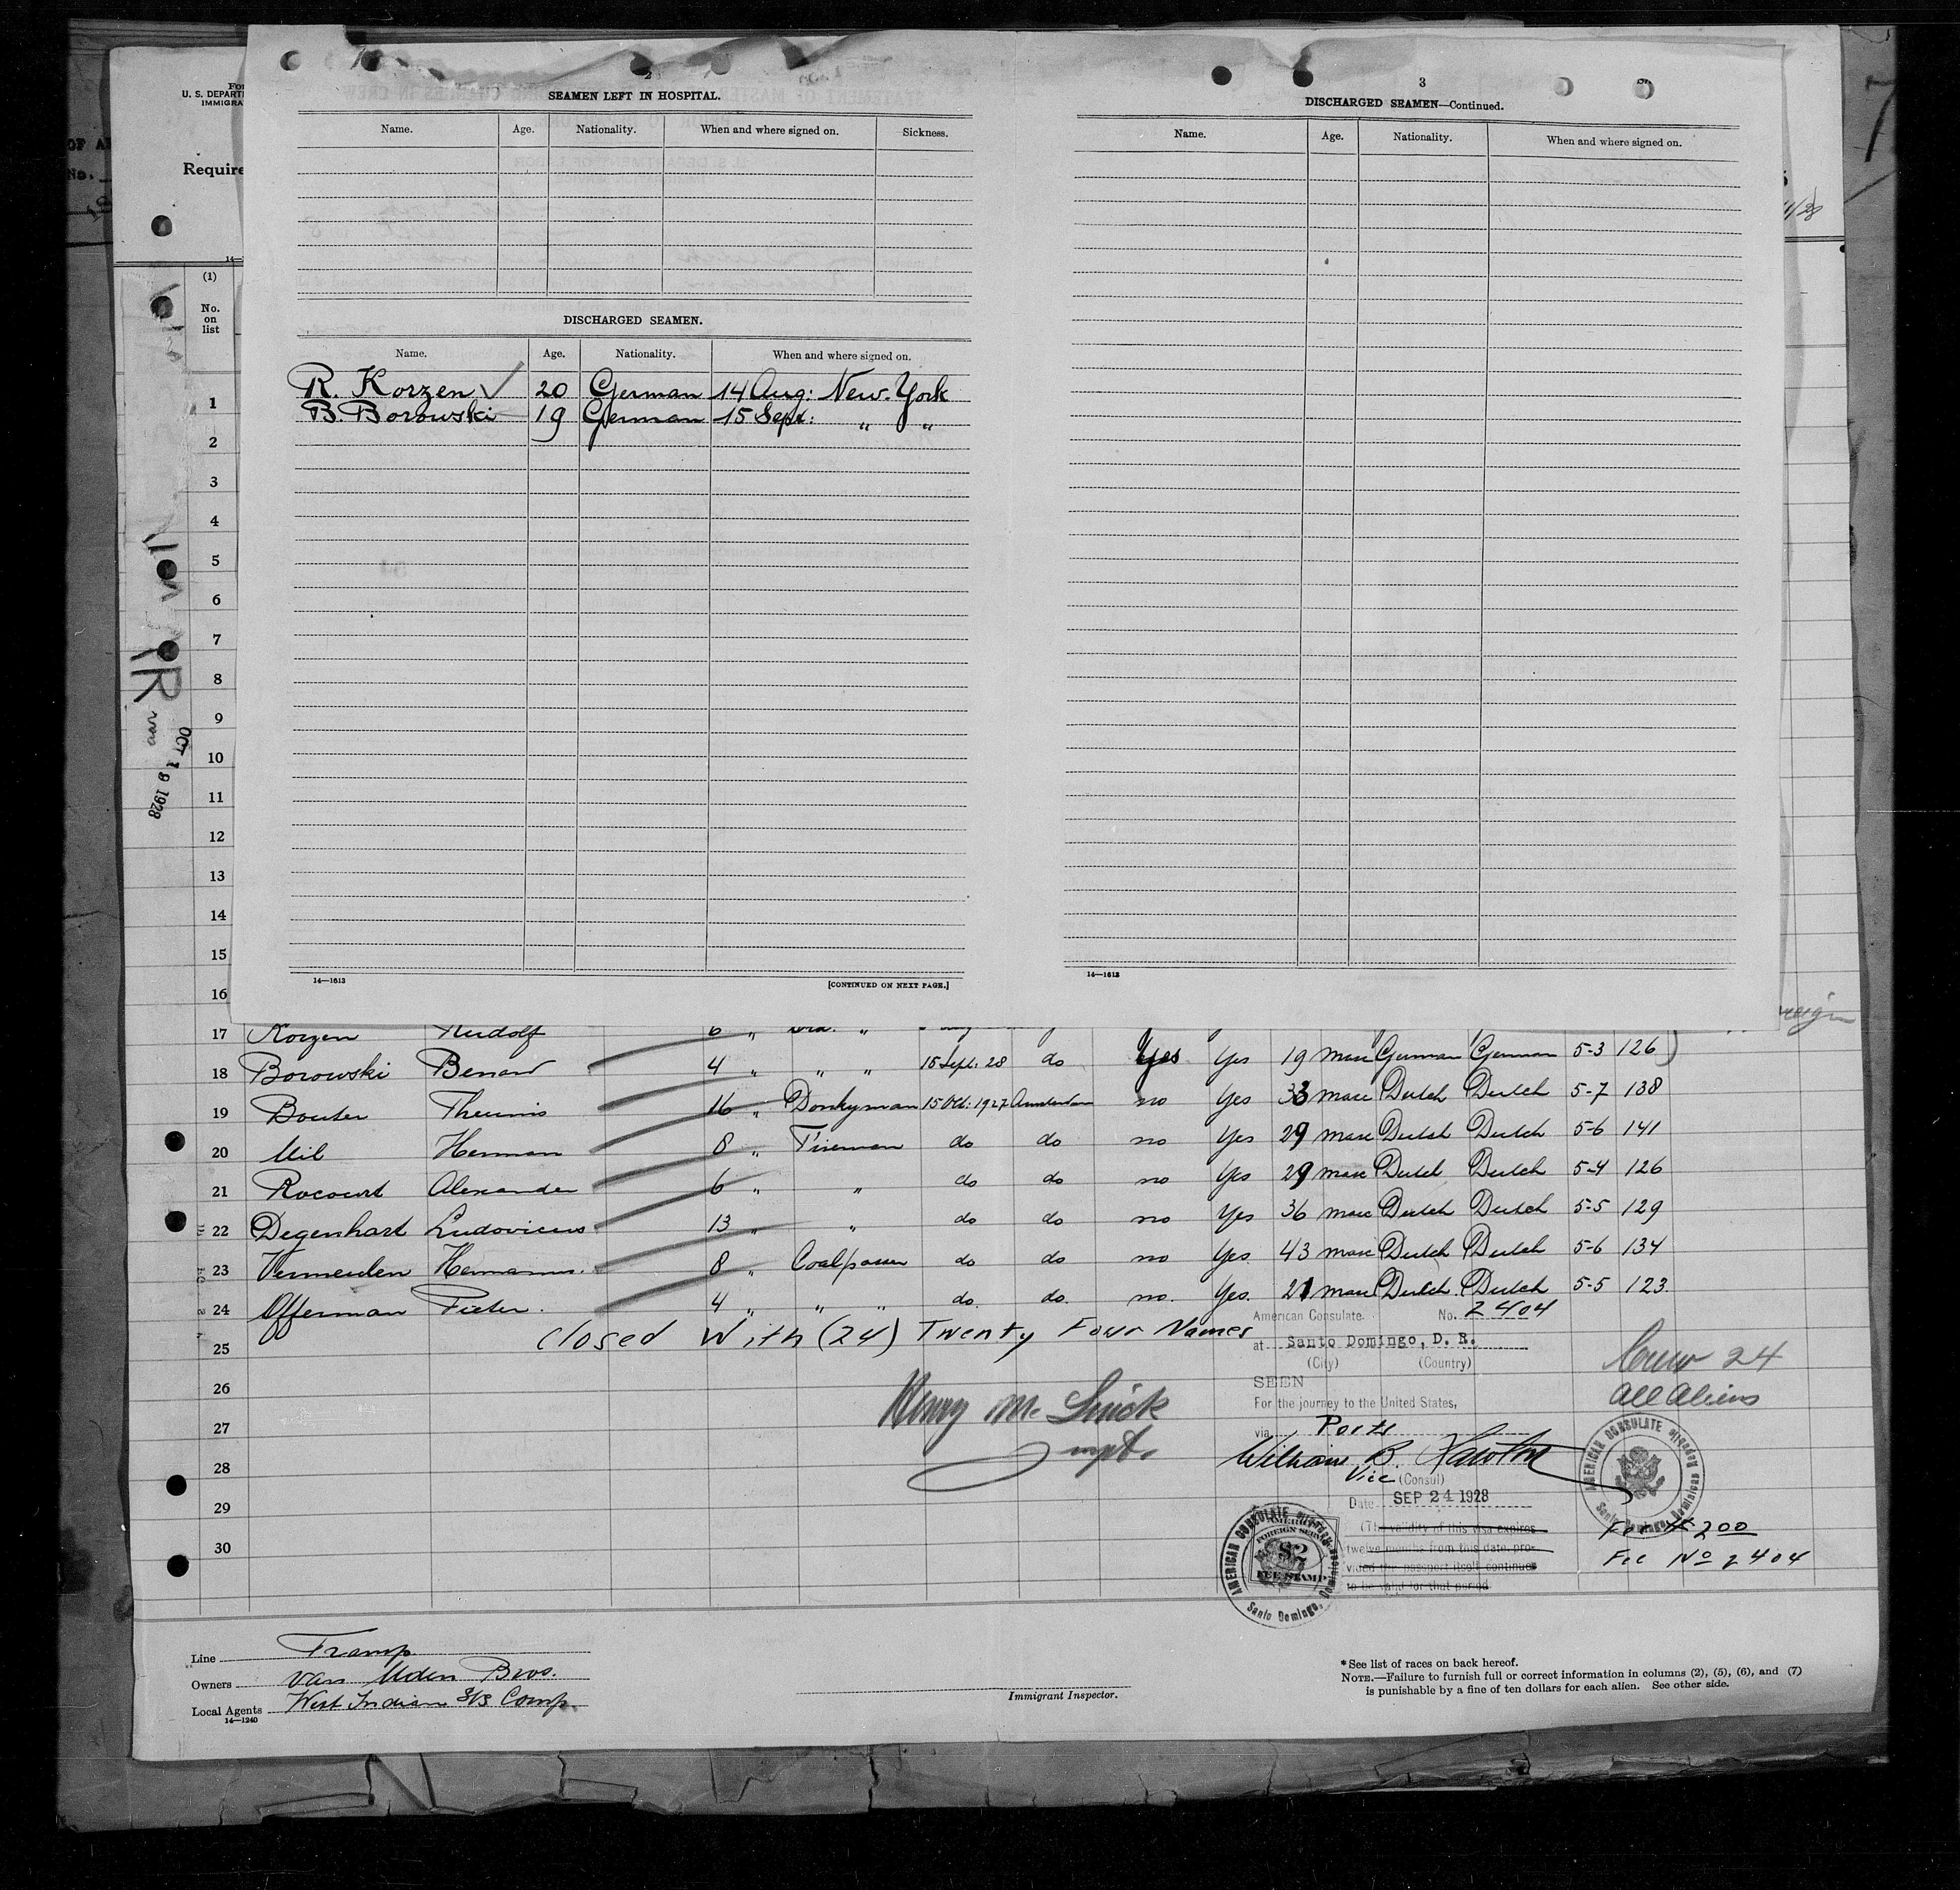 2
SEAMEN LEFT IN HOSPITAL.
Name. Age. Nationality. When and where signed on. Sickness.
DISCHARGED SEAMEN.
Name. Age. Nationality. When and where signed on.
R. Korzen 20 German 14 Aug: New-York
B. Borowski 19 German 15 Sept: " "
14—1613
[CONTINUED ON NEXT PAGE.]
3
DISCHARGED SEAMEN—Continued.
Name. Age. Nationality. When and where signed on.
14—1613
U. S. DEPART
IMMIGRA
Require
(1)
No.
on
list
1
2
3
4
5
6
7
8
9
10
11
12
13
14
15
16
OCT 19 1928
17 Korzen Rudolf 6 "
18 Borowski Benard 4 " " " 15 Sept: 28 do Yes Yes 19 Male German German 5-3 126
19 Bouter Theunis 16 " Donkyman 15 Oct: 1927 Amsterdam no Yes 33 Male Dutch Dutch 5-7 138
20 Mil Herman 8 " Fireman do do no Yes 29 Male Dutch Dutch 5-6 141
21 Rocourt Alexander 6 " " do do no Yes 29 Male Dutch Dutch 5-4 126
22 Degenhart Ludovicus 13 " " do do no Yes 36 Male Dutch Dutch 5-5 129
23 Vermeulen Hermanus. 8 " Coalpasser do do no Yes 43 Male Dutch Dutch 5-6 134
24 Offerman Pieter. 4 " " " do. do. no. Yes. 21 Male Dutch. Dutch 5-5 123.
25 Closed With (24) Twenty Four Names
26
27
28
29
30
American Consulate No. 2404
at Santo Domingo, D. R.
(City) (Country)
SEEN
For the journey to the United States,
via Ports
William B.
Vice (Consul)
Date SEP 24 1928
(The validity of this visa expires
twelve months from this date, pro-
vided the passport itself continues
to be valid for that period
Crew 24
All Aliens
AMERICAN CONSULATE
Santo Domingo, Dominican Republic
Fee No 2404
Henry M.
Inspt.
AMERICAN CONSULATE
Santo Domingo, Dominican
FOREIGN SERVICE
$2
FEE STAMP
Line Tramp
Owners Van Uden Bros.
Local Agents West Indian S/S Comp.
14—1240
Immigrant Inspector.
* See list of races on back hereof.
NOTE.—Failure to furnish full or correct information in columns (2), (5), (6), and (7)
is punishable by a fine of ten dollars for each alien. See other side.